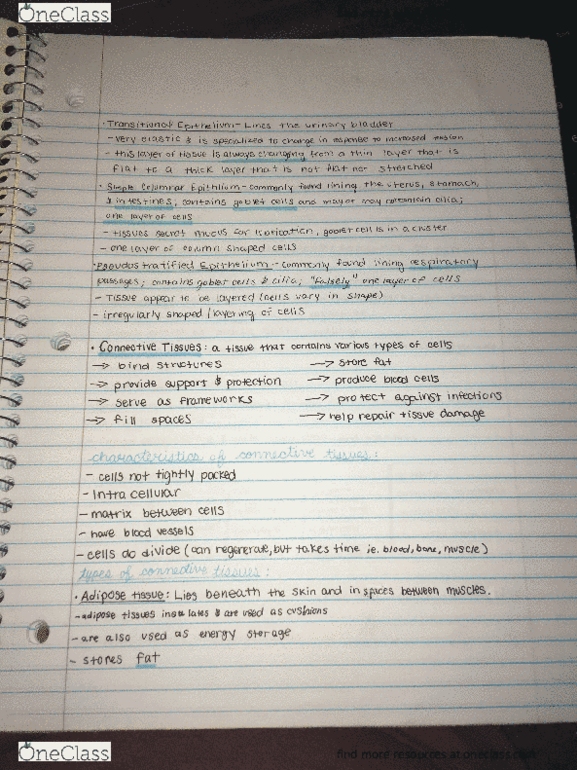 OneClass
· Transitional Epithelium - Lines the urinary bladder
- very elastic & is specialized to change in response to increased tension
- this layer of tissue is always changing from a thin layer that is
flat to a thick layer that is not flat nor stretched
· Simple Columnar Epithlium - commonly found lining the uterus, stomach,
& intestines; contains goblet cells and may or may not contain cilia;
one layer of cells
- tissues secret mucus for lubrication, goblet cells in a cluster
- one layer of column shaped cells
· Pseudostratified Epithelium - commonly found lining respiratory
passages; contains goblet cells & cilia; "falsely" one layer of cells
- Tissue appear to be layered (cells vary in shape)
- irregularly shaped / layering of cells
· Connective Tissues: a tissue that contains various types of cells
→ bind structures → store fat
→ provide support & protection → produce blood cells
→ serve as frameworks → protect against infections
→ fill spaces → help repair tissue damage
characteristics of connective tissues:
- cells not tightly packed
- Intra cellular
- matrix between cells
- have blood vessels
- cells do divide (can regenerate, but takes time ie. blood, bone, muscle)
types of connective tissues:
· Adipose tissue: Lies beneath the skin and in spaces between muscles.
- adipose tissues insulates & are used as cushions
- are also used as energy storage
- stores fat
OneClass
find more resources at oneclass.com